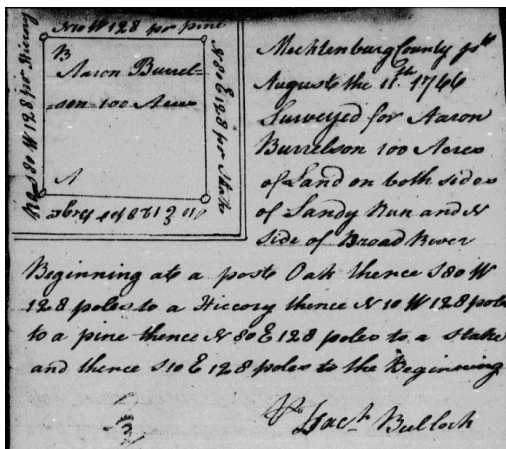 N 10 W 128 po pine
B
Aaron Burrel-
son 100 Acres
N
N 80 E 128 po Stake
S 80 W 128 po Hiccory
S 10 E 128 po Beg
Mecklenburg County
August the 11th. 1766
Surveyed for Aaron
Burrelson 100 Acres
of Land on both sides
of Sandy Run and N
side of Broad River
Beginning at a post Oak thence S 80 W
128 poles to a Hiccory thence N 10 W 128 poles
to a pine thence N 80 E 128 poles to a stake
and thence S 10 E 128 poles to the Beginning
Zach Bullock